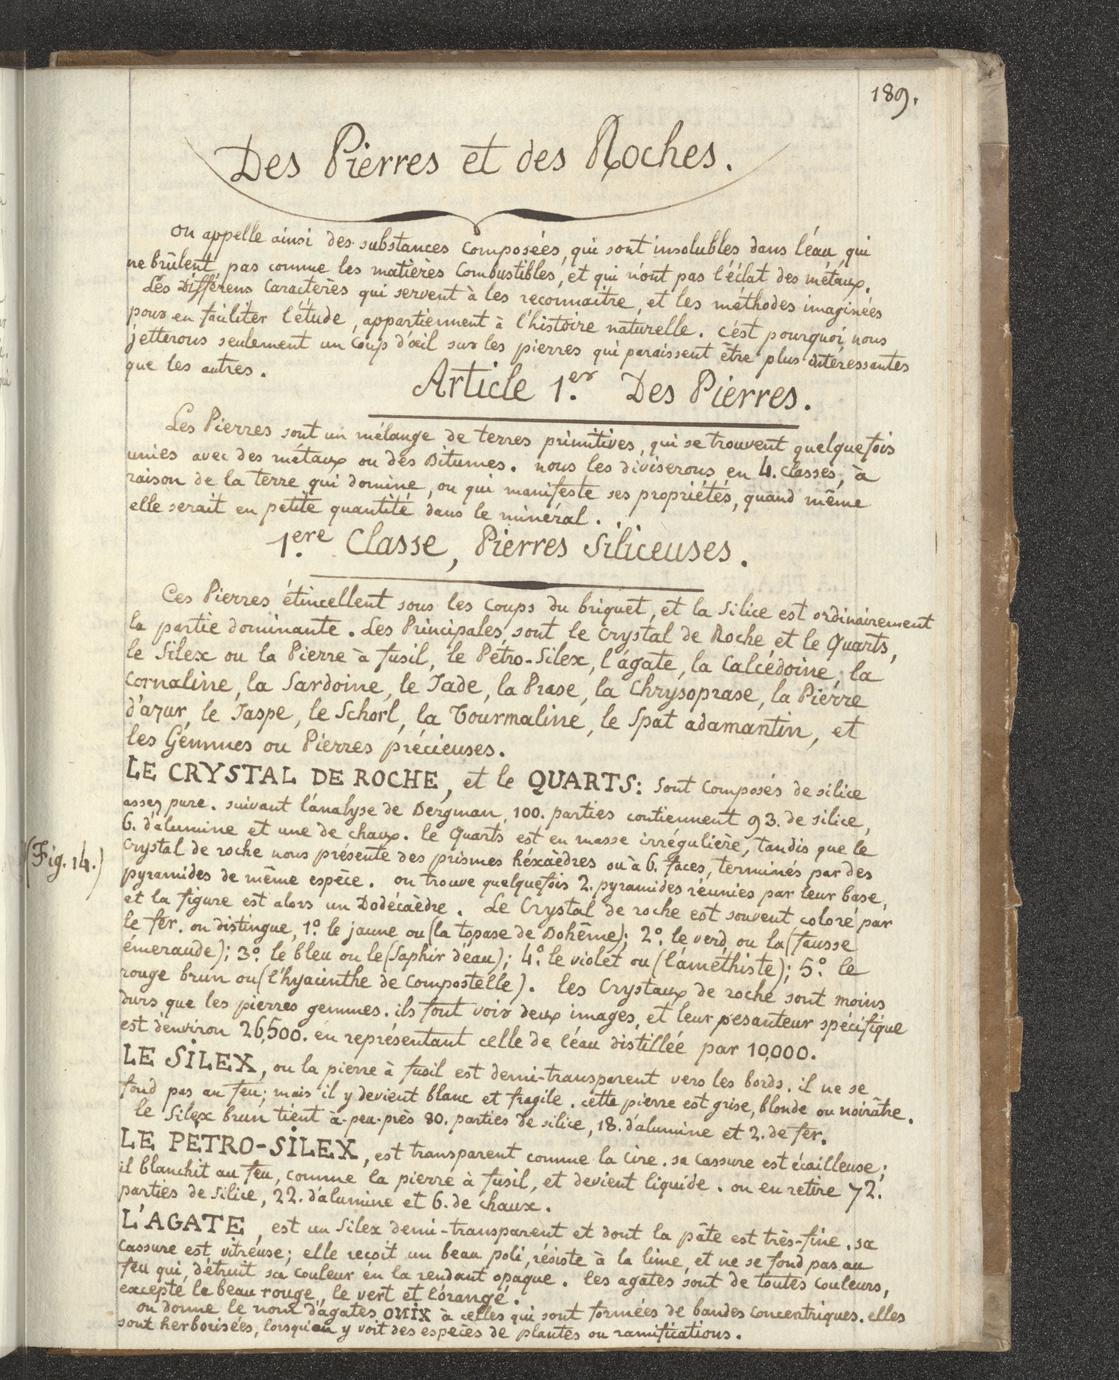 189.
Des Pierres et des Roches.
on appelle ainsi des substances composées, qui sont insolubles dans l'éau, qui
ne brûlent pas comme les matières combustibles, et qui n'ont pas l'éclat des métaux.
Les différens caractères qui servent à les reconnaître, et les méthodes imaginées
pour en faciliter l'étude, appartiennent à l'histoire naturelle. c'est pourquoi nous
jetterons seulement un coup d'œil sur les pierres qui paraissent être plus intéressantes
que les autres.
Article 1.er Des Pierres.
Les Pierres sont un mélange de terres primitives, qui se trouvent quelquefois
unies avec des métaux ou des Bitumes. nous les diviserons en 4. classes, à
raison de la terre qui domine, ou qui manifeste ses propriétés, quand même
elle serait en petite quantité dans le minéral.
1.ere Classe, Pierres Siliceuses.
Ces Pierres étincellent sous les coups du briquet, et la silice est ordinairement
la partie dominante. Les Principales sont le crystal de Roche et le Quarts,
le Silex ou la Pierre à fusil, le Pétro-Silex, l'ágate, la Calcédoine, la
Cornaline, la Sardoine, le Jade, la Prase, la Chrysoprase, la Pierre
d'azur, le Jaspe, le Schorl, la Tourmaline, le Spat adamantin, et
les Gemmes ou Pierres précieuses.
LE CRYSTAL DE ROCHE, et le QUARTS: sont composés de silice
assez pure. suivant l'analyse de Bergman, 100. parties contiennent 93. de silice,
6. d'alumine et une de chaux. le Quarts est en masse irrégulière, tandis que le
(Fig. 14.)
crystal de roche nous présente des prismes héxaèdres ou à 6. faces, terminés par des
pyramides de même espèce. on trouve quelquefois 2. pyramides réunies par leur base,
et la figure est alors un Dodécaèdre. Le Crystal de roche est souvent coloré par
le fer. on distingue, 1.º le jaune ou (la topase de Bohême); 2.º le verd ou la (fausse
émeraude); 3.º le bleu ou le (Saphir d'éau); 4.º le violet ou (l'améthiste); 5.º le
rouge brun ou (l'hyacinthe de Compostelle). les Crystaux de roche sont moins
durs que les pierres gemmes. ils font voir deux images, et leur pesanteur spécifique
est d'environ 26,500. en représentant celle de l'éau distillée par 10,000.
LE SILEX, ou la pierre à fusil est demi-transparent vers les bords. il ne se
fond pas au feu; mais il y devient blanc et fragile. cette pierre est grise, blonde ou noirâtre.
le Silex brun tient à-peu-près 80. parties de silice, 18. d'alumine et 2. de fer.
LE PETRO-SILEX, est transparent comme la cire. sa cassure est écailleuse;
il blanchit au feu, comme la pierre à fusil, et devient liquide. on en retire 72.
parties de silice, 22. d'alumine et 6. de chaux.
L'AGATE, est un Silex demi-transparent et dont la pâte est très-fine. sa
cassure est vitreuse; elle reçoit un beau poli, résiste à la lime, et ne se fond pas au
feu qui, détruit sa couleur en la rendant opaque. les agates sont de toutes couleurs,
excepté le beau rouge, le vert et l'orangé.
on donne le nom d'agates ONIX à celles qui sont formées de bandes concentriques. elles
sont herborisées, lorsqu'on y voit des espèces de plantes ou ramifications.